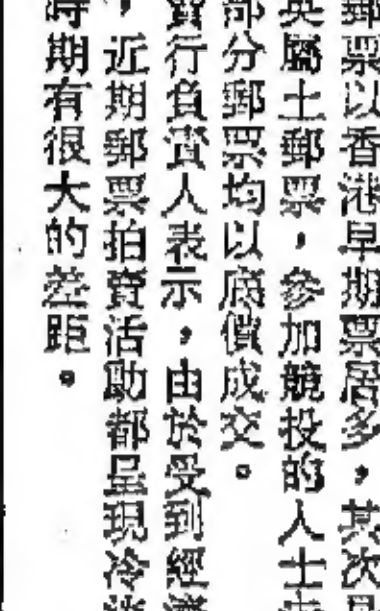 郵票以香港早期票居多，其次
英屬土郵票，參加競投的人士
部分郵票均以底價成交。
賣行負責人表示，由於受到經濟
，近期郵票拍賣活動都呈現冷
時期有很大的差距。